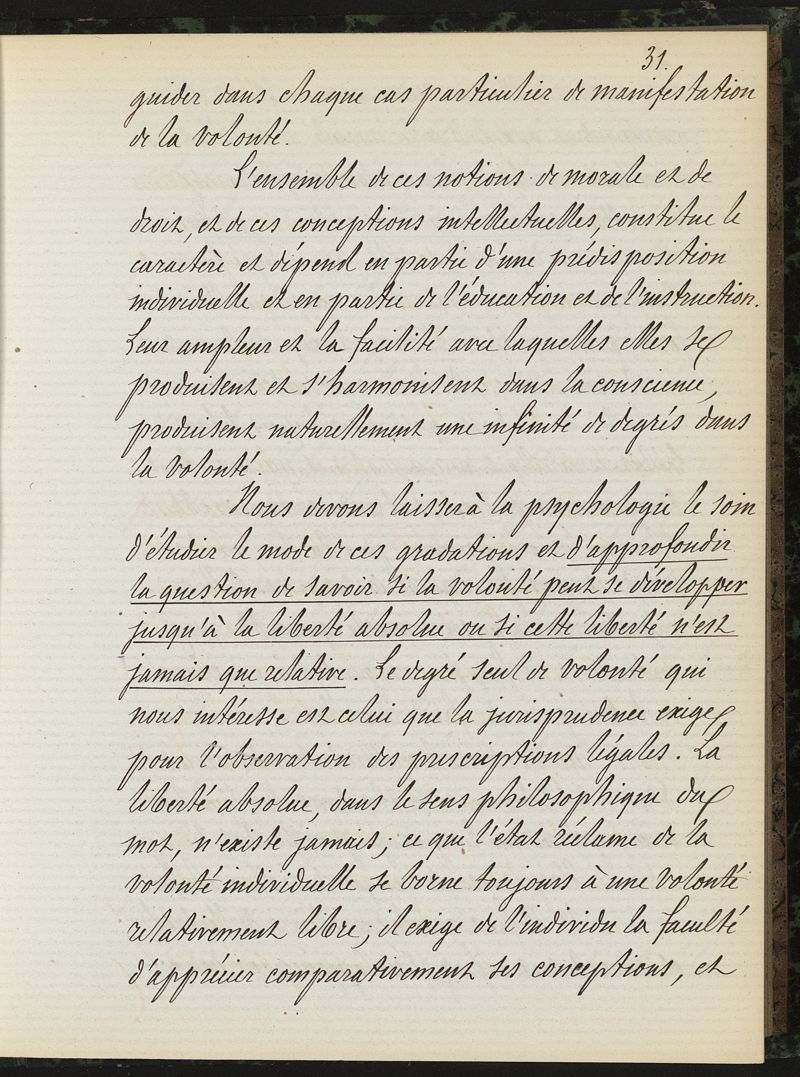 31.
guider dans chaque cas particulier de manifestation
de la volonté.
L'ensemble de ces notions de morale et de
droit, et de ces conceptions intellectuelles, constitue le
caractère et dépend en partie d'une prédisposition
individuelle et en partie de l'éducation et de l'instruction.
Leur ampleur et la facilité avec laquelles elles se
produisent et s'harmonisent dans la conscience,
produisent naturellement une infinité de degrés dans
la volonté.
Nous devons laisser à la psychologie le soin
d'étudier le mode de ces gradations et d'approfondir
la question de savoir si la volonté peut se développer
jusqu'à la liberté absolue ou si cette liberté n'est
jamais que relative. Le degré seul de volonté qui
nous intéresse est celui que la jurisprudence exige
pour l'observation des prescriptions légales. La
liberté absolue, dans le sens philosophique du
mot, n'existe jamais; ce que l'état réclame de la
volonté individuelle se borne toujours à une volonté
relativement libre; il exige de l'individu la faculté
d'apprécier comparativement ses conceptions, et